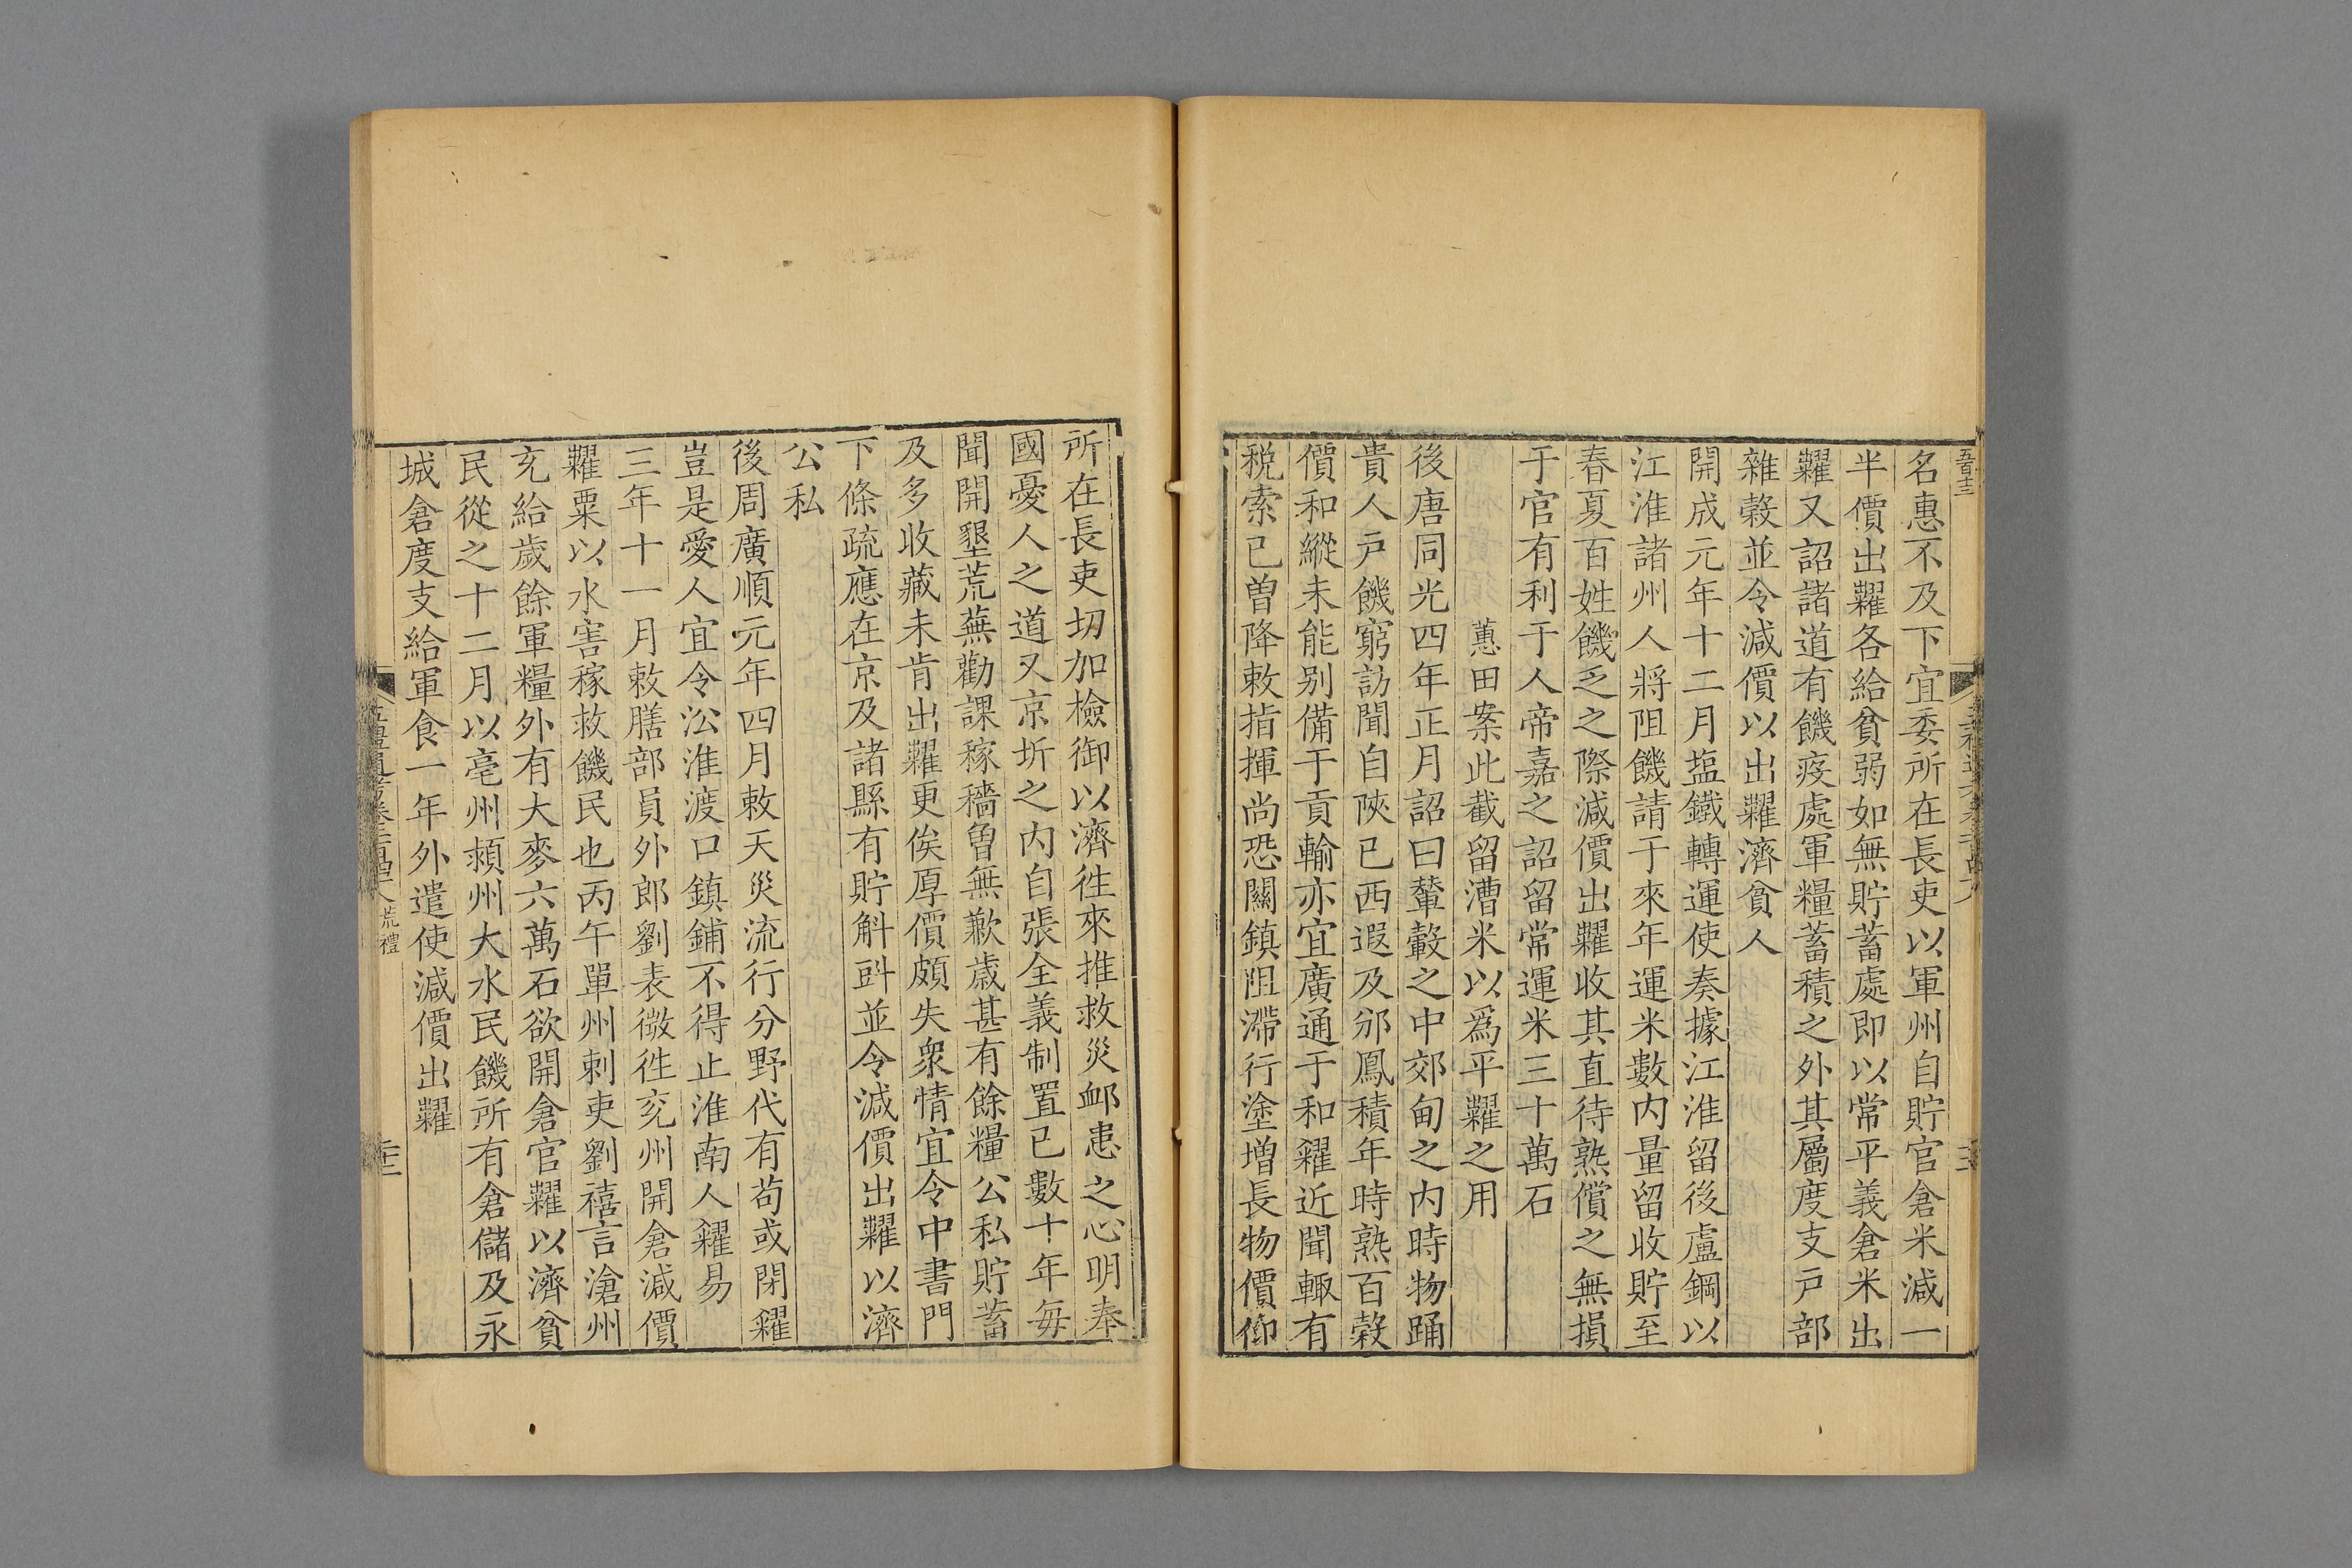 名惠不及下宜委所在長吏以軍州自貯官倉米減一
半價出糶各給貧弱如無貯蓄處即以常平義倉米出
糶又詔諸道有饑疫處軍糧蓄積之外其屬度支戶部
雜穀並令減價以出糶濟貧人
開成元年十二月塩鐵轉運使奏據江淮留後盧鋼以
江淮諸州人將阻饑請于來年運米數內量留收貯至
春夏百姓饑乏之際減價出糶收其直待熟償之無損
于官有利于人帝嘉之詔留常運米三十萬石
蕙田案此截留漕米以爲平糶之用
後唐同光四年正月詔曰輦轂之中郊甸之內時物踊
貴人戶饑窮訪聞自陜已西遐及邠鳳積年時熟百穀
價和縱未能别備于貢輸亦宜廣通于和糴近聞輙有
稅索已曽降敕指揮尚恐關鎮阻滯行塗增長物價仰
所在長吏切加檢御以濟徃來推救災卹患之心明奉
國憂人之道又京圻之內自張全義制置已數十年每
聞開墾荒蕪勸課稼穡曽無歉歳甚有餘糧公私貯蓄
及多收藏未肯出糶更俟厚價頗失衆情宜令中書門
下條疏應在京及諸縣有貯斛㪷並令減價出糶以濟
公私
後周廣順元年四月敕天災流行分野代有苟或閉糴
豈是愛人宜令㳂淮渡口鎮鋪不得止淮南人糴易
三年十一月敕膳部員外郎劉表微徃兖州開倉減價
糶粟以水害稼救饑民也丙午單州刺吏劉禧言滄州
充給歲餘軍糧外有大麥六萬石欲開倉官糶以濟貧
民從之十二月以亳州潁州大水民饑所有倉儲及永
城倉度支給軍食一年外遣使減價出糶
荒禮